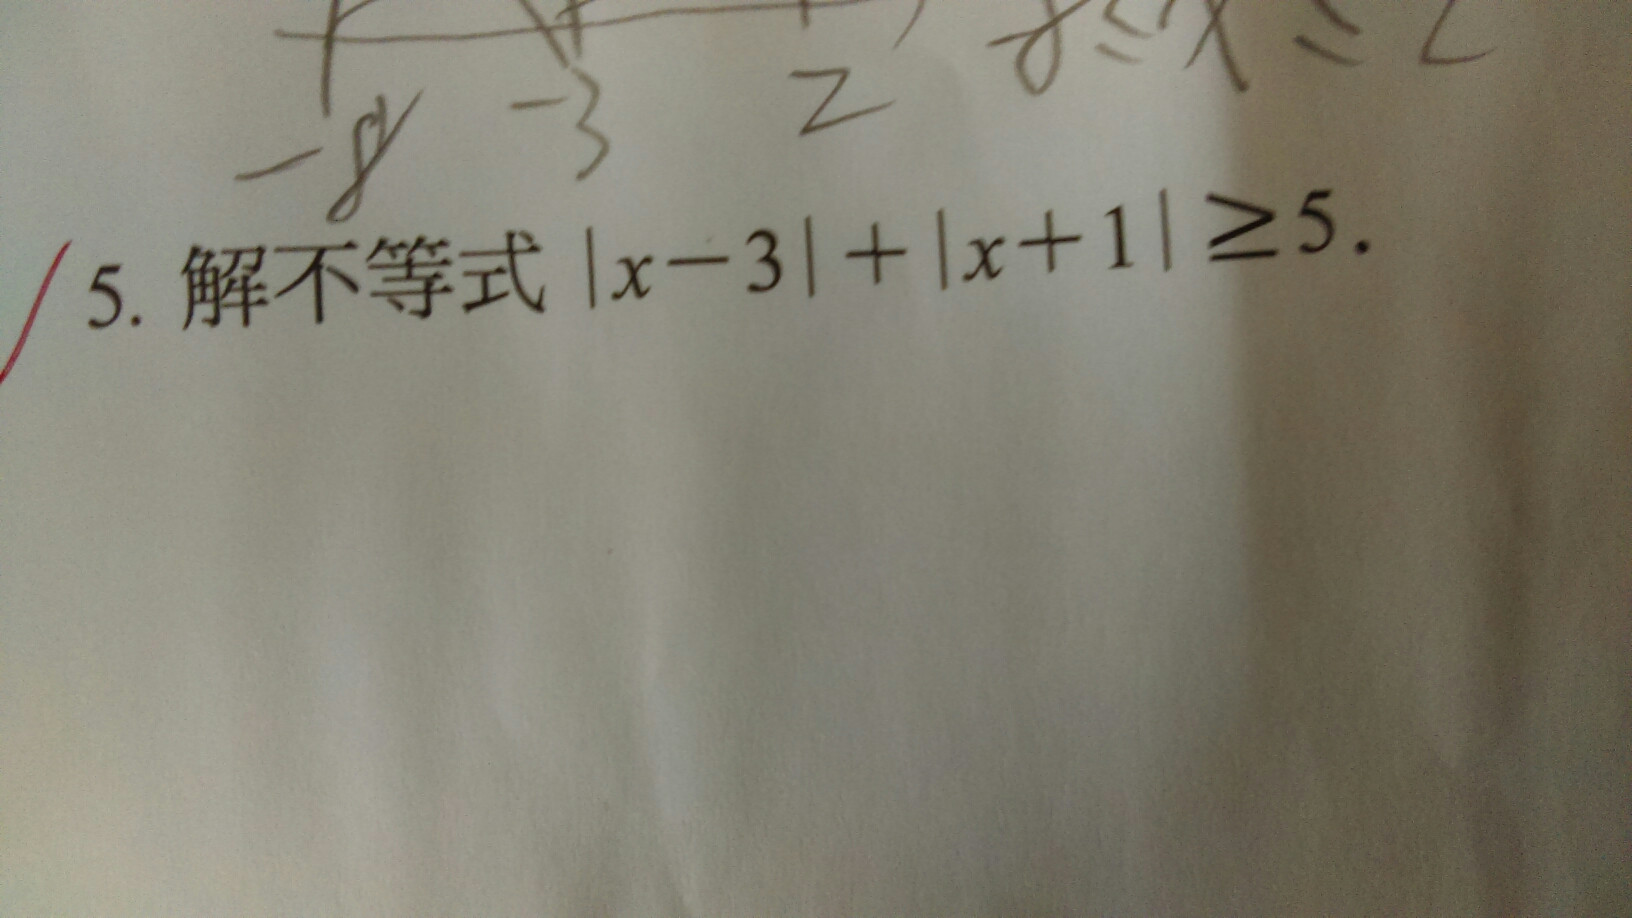 -8 -3 2 -8≤x≤2
5. 解不等式 |x-3|+|x+1|≥5.